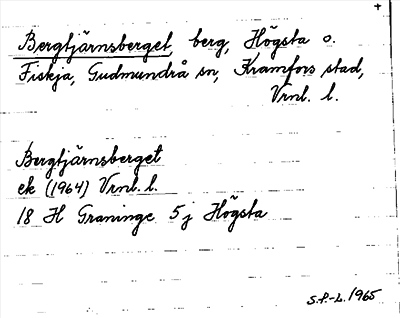 Bergtjärnsberget, berg, Högsta o.
Fiskja, Gudmundrå sn, Kramfors stad,
Vrnl. l.
Bergtjärnsberget
ek (1964) Vrnl. l.
18 H Graninge 5j Högsta
S.P.-L. 1965